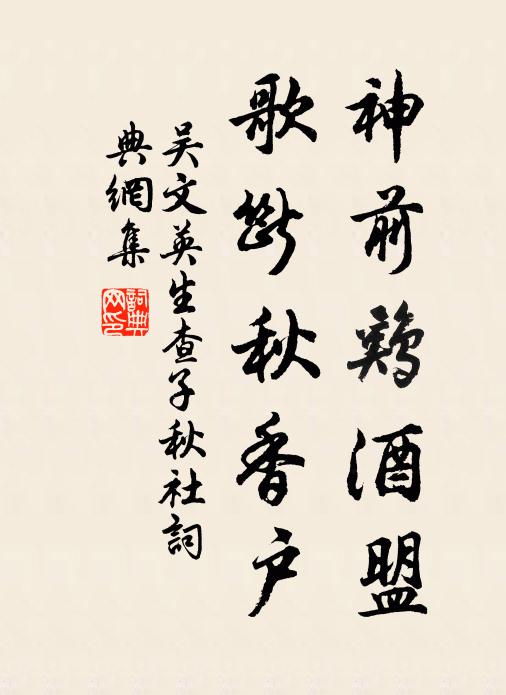 神前鷄酒盟
歌斷秋香户
吴文英生查子秋社詞
典網集
詞典網印